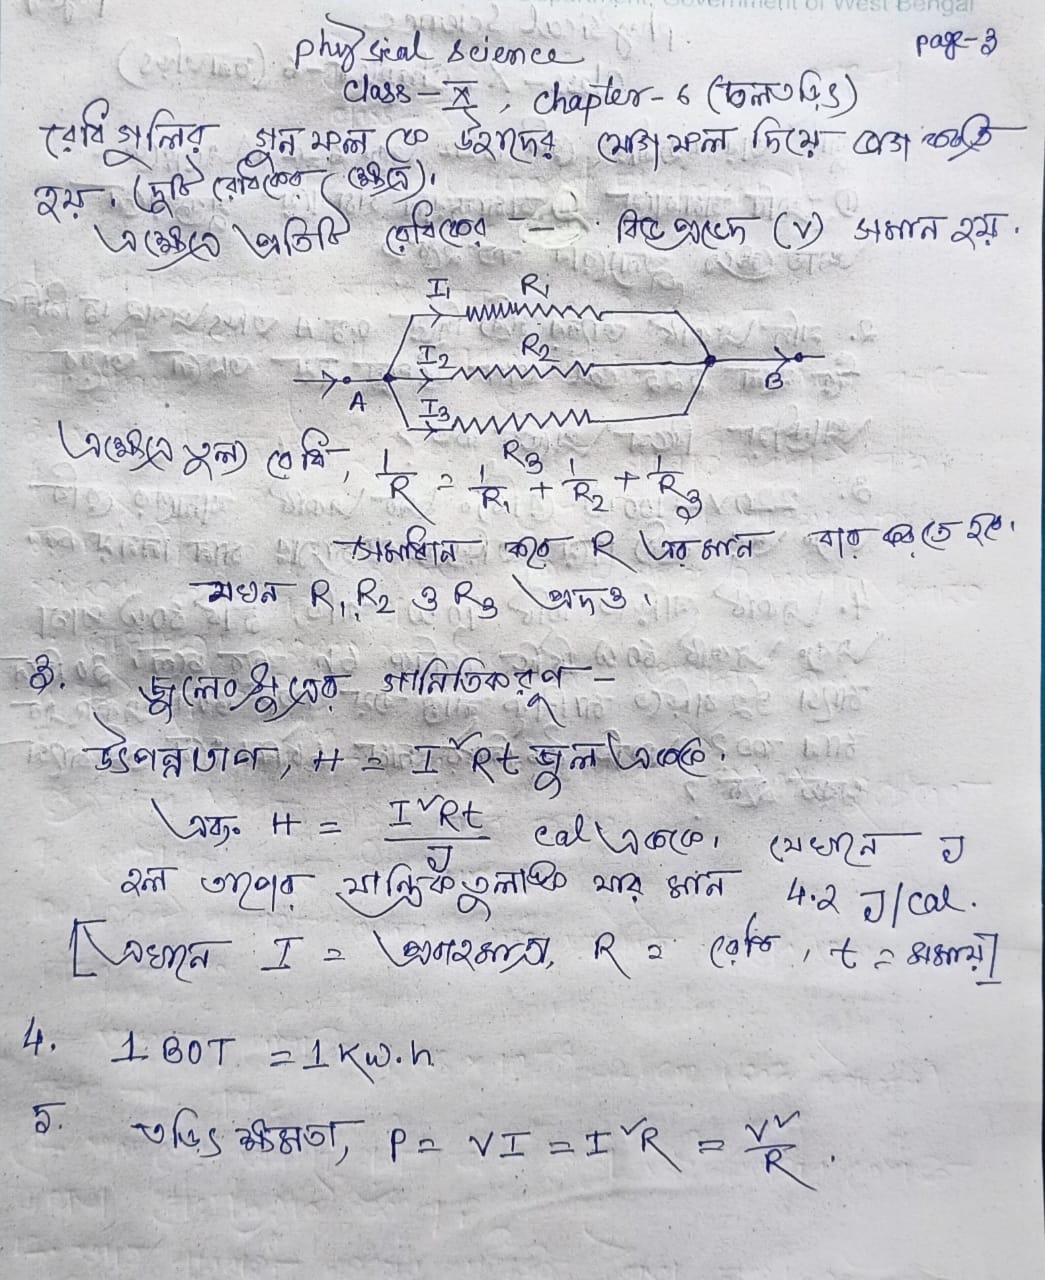 Government of West Bengal
page-3
Physical science
class - X, chapter - 6 (চলতড়িৎ)
রোধ গুলির গুন ফল কে উহাদের যোগ ফল দিয়ে ভাগ করতে
হয়. (দুটি রোধকের ক্ষেত্রে)।
এক্ষেত্রে প্রতিটি রোধকের - বিভব প্রভেদ (V) সমান হয়.
I₁ R₁
I₂ R₂
A B
I₃
R₃
এক্ষেত্রে তুল্য রোধ, 1/R = 1/R₁ + 1/R₂ + 1/R₃
সমাধান করে R এর মান বার করতে হবে।
যখন R₁, R₂ ও R₃ প্রদত্ত।
3. জুলের সূত্রের গানিতিকরূপ -
উৎপন্ন তাপ, H = I²Rt জুল এককে.
এবং H = I²Rt/J cal এককে। যেখানে J
হল তাপের যান্ত্রিক তুল্যাঙ্ক যার মান 4.2 J/cal.
[এখানে I = প্রবাহমাত্রা, R = রোধ, t = সময়]
4. 1 BOT = 1 Kw.h
5. তড়িৎ ক্ষমতা, P = VI = I²R = V²/R.